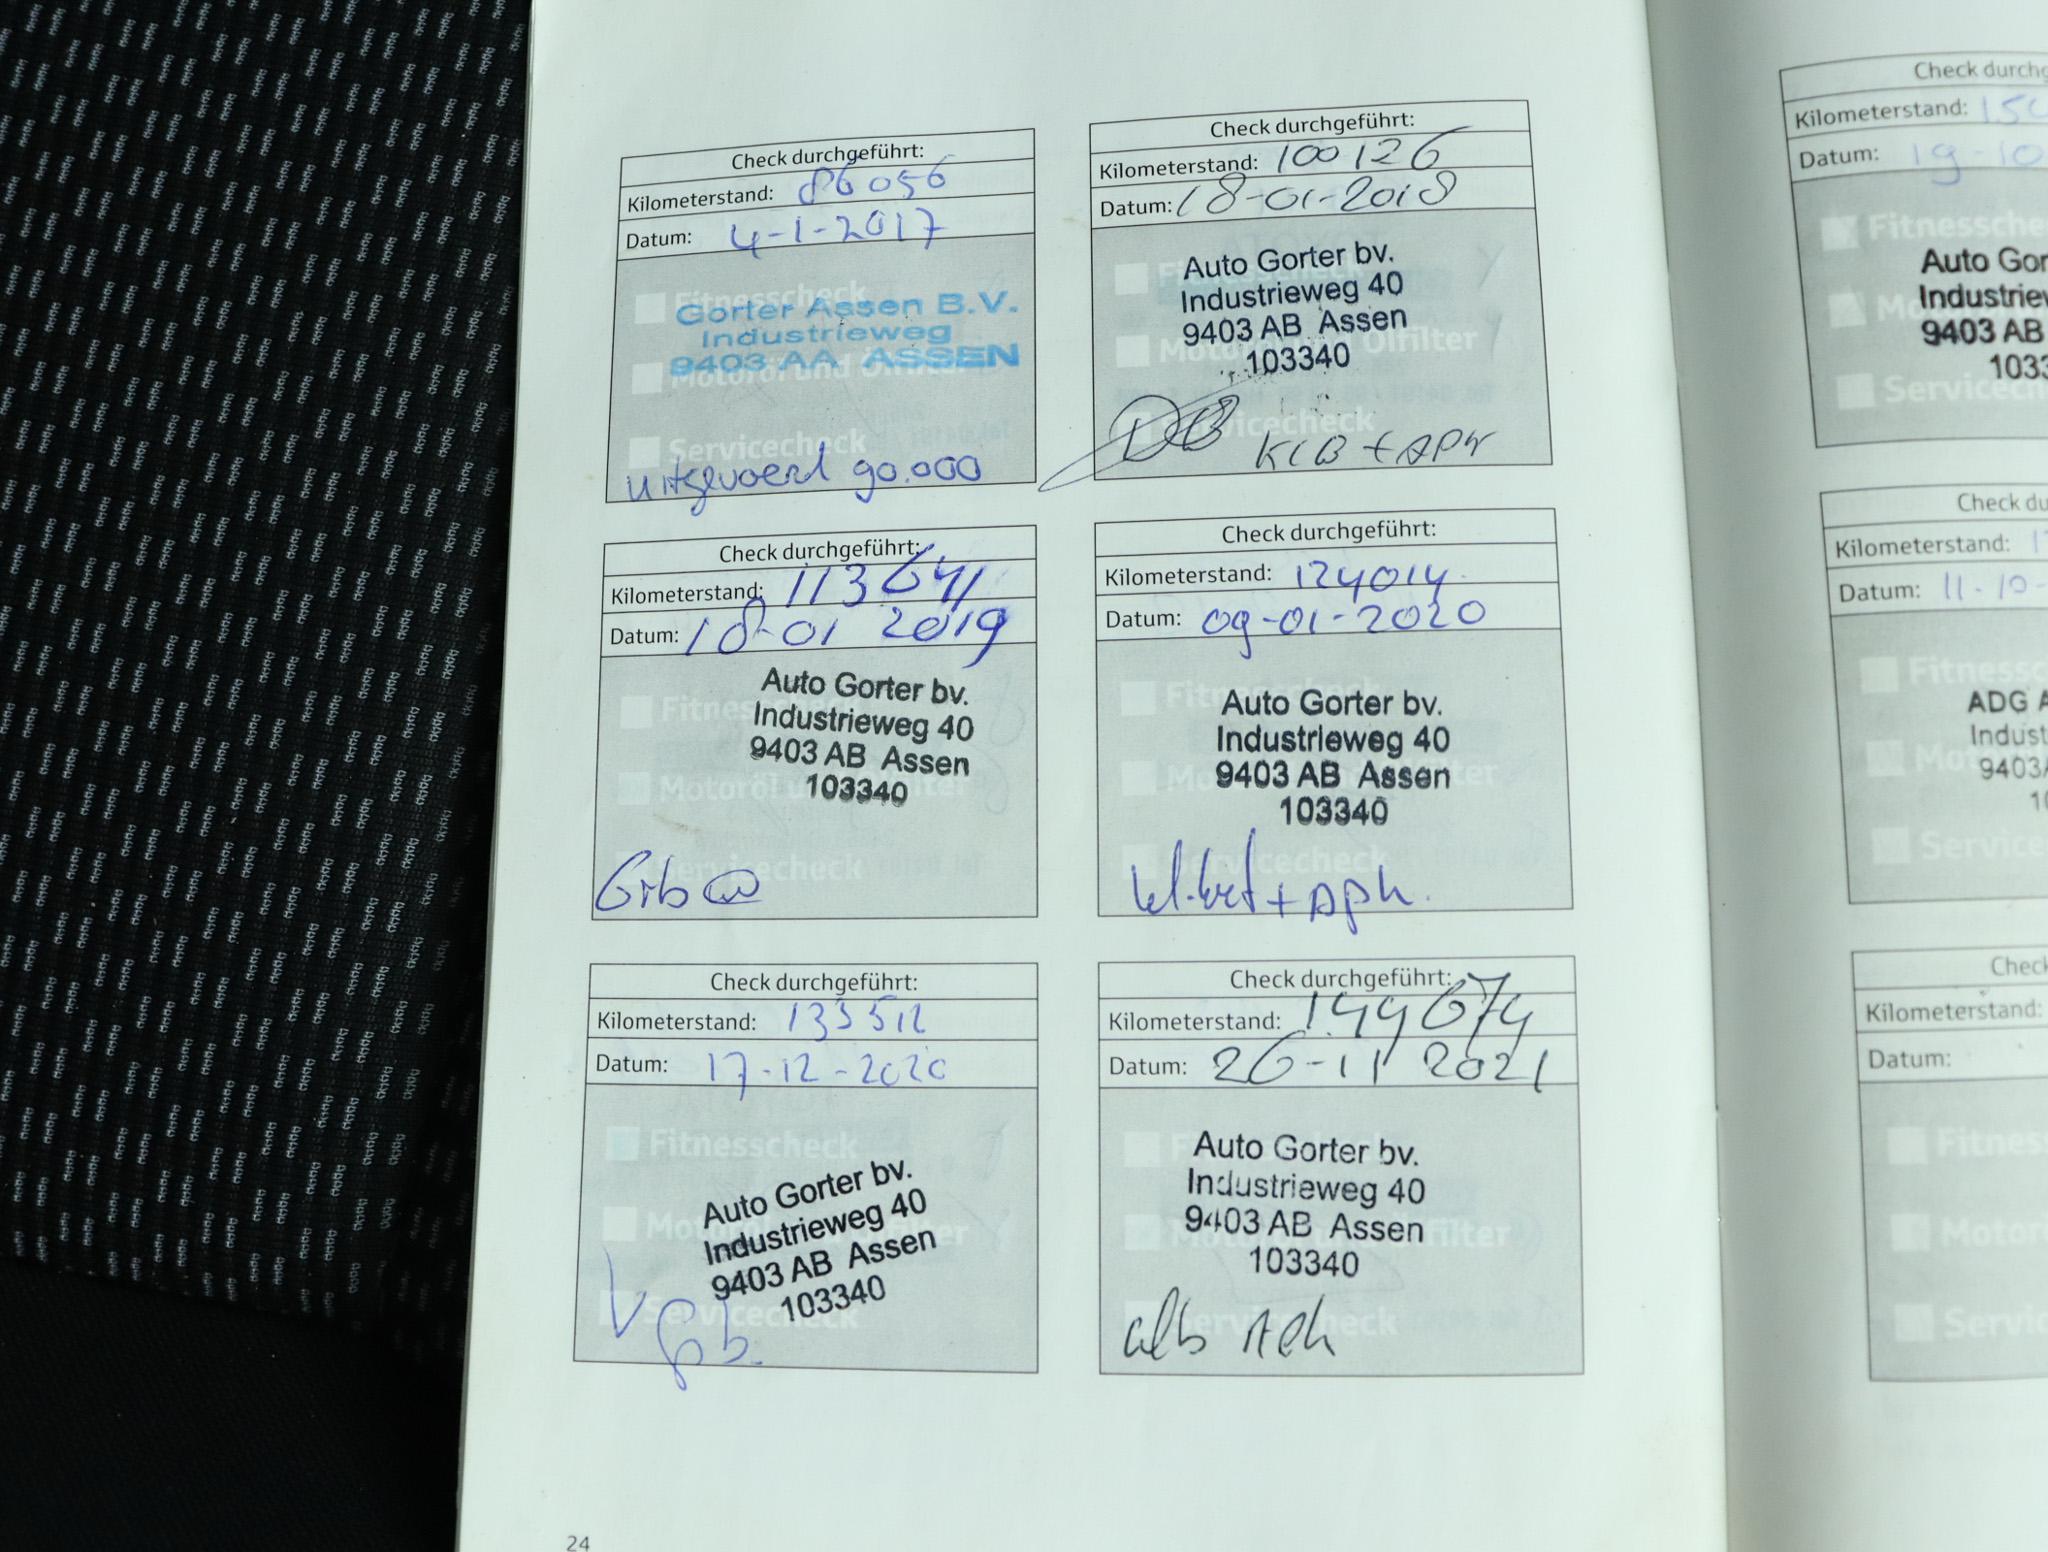 Check durchgeführt:
Kilometerstand: 86056
Datum: 4-1-2017
Fitnesscheck
Gorter Assen B.V.
Industrieweg
9403 AA ASSEN
Motoröl und Ölfilter
Servicecheck
uitgevoerd 90.000
Check durchgeführt:
Kilometerstand: 100126
Datum: 18-01-2018
Fitnesscheck
Auto Gorter bv.
Industrieweg 40
9403 AB Assen
Motoröl und Ölfilter
103340
Servicecheck
KLB + APK
Check durchgeführt:
Kilometerstand: 113641
Datum: 18-01 2019
Auto Gorter bv.
Fitnesscheck
Industrieweg 40
9403 AB Assen
Motoröl und Ölfilter
103340
Servicecheck
Check durchgeführt:
Kilometerstand: 124014
Datum: 09-01-2020
Fitnesscheck
Auto Gorter bv.
Industrieweg 40
9403 AB Assen
Motoröl und Ölfilter
103340
Servicecheck
Check durchgeführt:
Kilometerstand: 133512
Datum: 17-12-2020
Fitnesscheck
Auto Gorter bv.
Motoröl und Ölfilter
Industrieweg 40
9403 AB Assen
103340
Servicecheck
Check durchgeführt:
Kilometerstand: 144674
Datum: 26-11 2021
Fitnesscheck
Auto Gorter bv.
Industrieweg 40
9403 AB Assen
Motoröl und Ölfilter
103340
Servicecheck
24
Check durchg
Kilometerstand: 150
Datum: 19-10
Fitnessche
Auto Gor
Industriew
9403 AB
103
Servicech
Check du
Kilometerstand: 1
Datum: 11-10-
Fitnessc
ADG A
Indust
9403
10
Service
Check
Kilometerstand:
Datum:
Fitness
Motorö
Servi